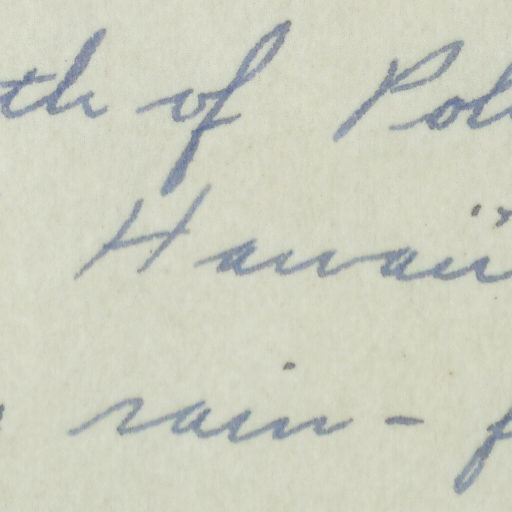 th of Pol
Hawaii
rain - f